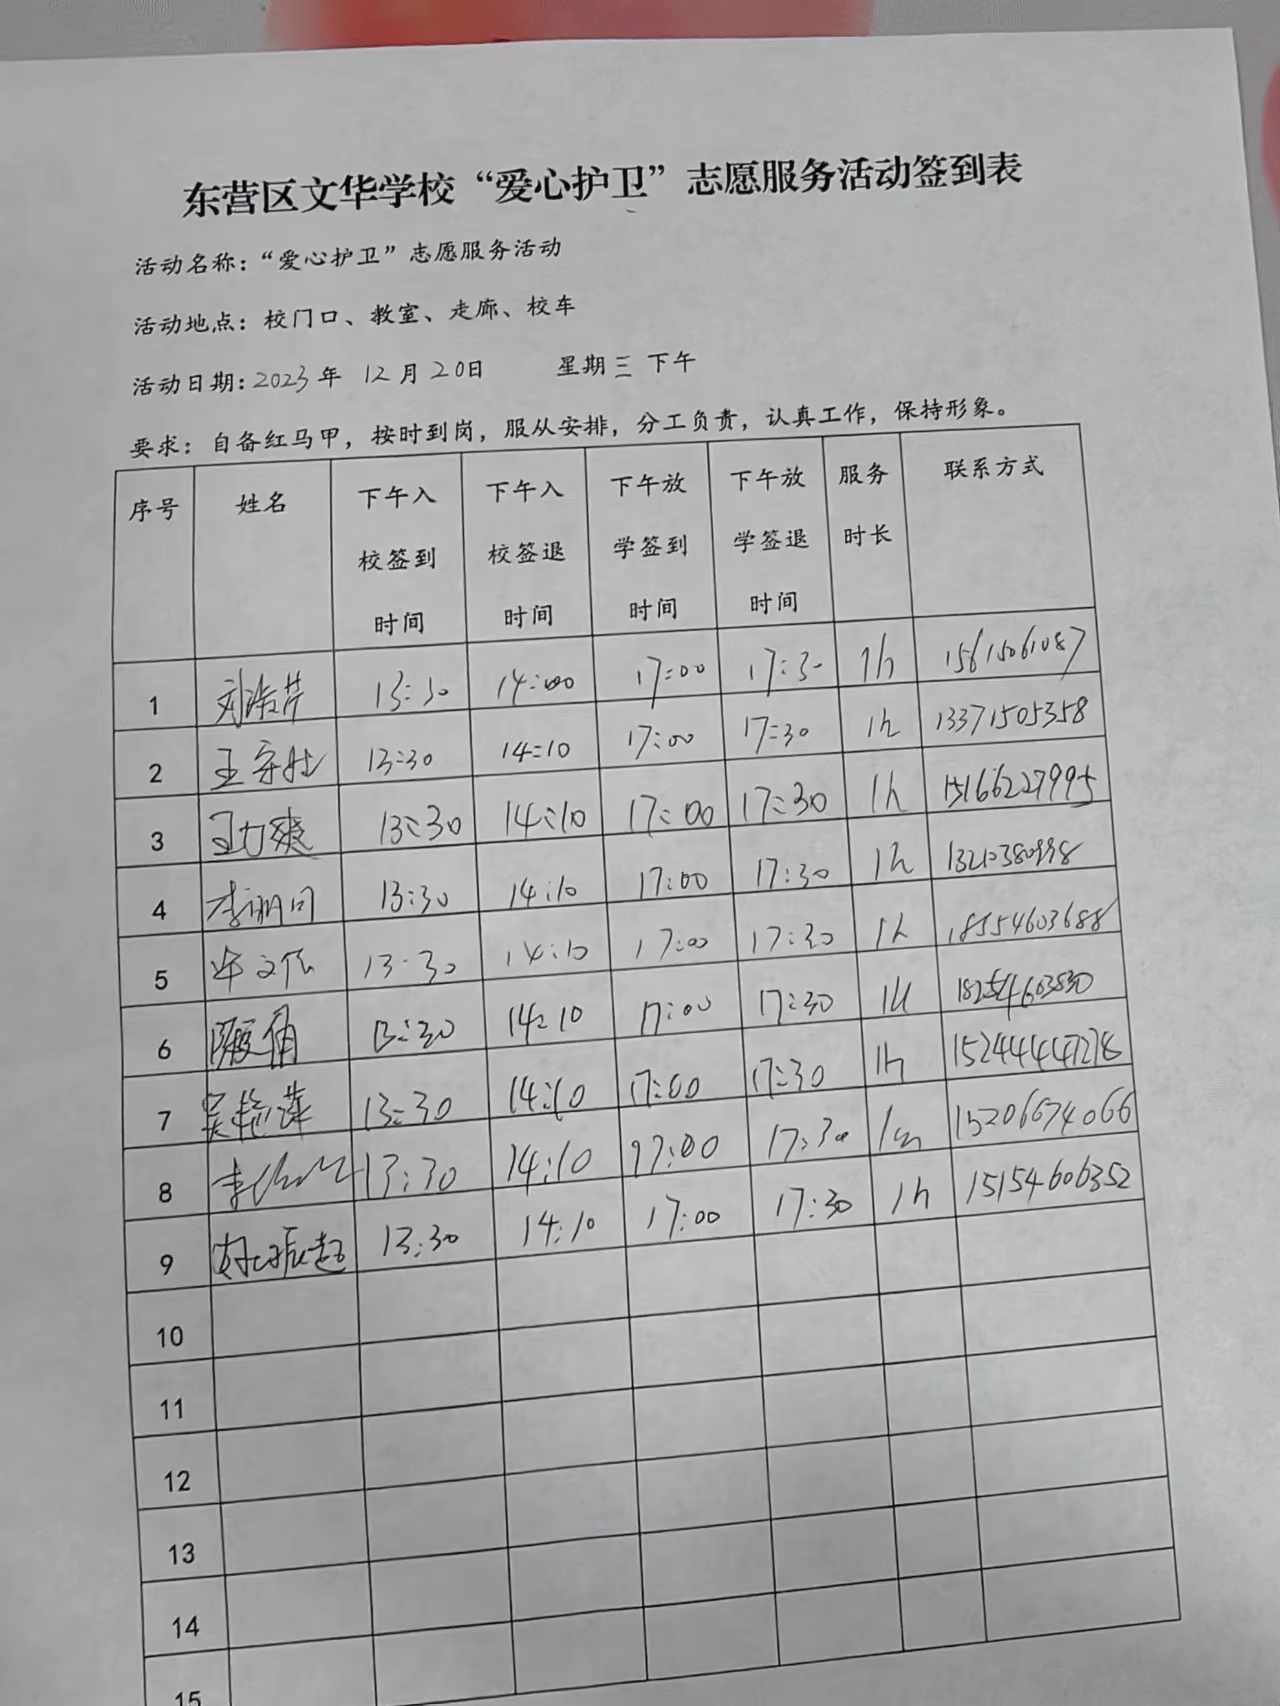 东营区文华学校“爱心护卫”志愿服务活动签到表
活动名称：“爱心护卫”志愿服务活动
活动地点：校门口、教室、走廊、校车
活动日期：2023年 12月20日 星期三 下午
要求：自备红马甲，按时到岗，服从安排，分工负责，认真工作，保持形象。
序号 姓名 下午入校签到时间 下午入校签退时间 下午放学签到时间 下午放学签退时间 服务时长 联系方式
1 刘浩芹 13:30 14:00 17:00 17:30 1h 15615061087
2 王守壮 13:30 14:10 17:00 17:30 1h 13371505358
3 王力爽 13:30 14:10 17:00 17:30 1h 15166227995
4 13:30 14:10 17:00 17:30 1h
5 13:30 14:10 17:00 17:30 1h 18554603688
6 13:30 14:10 17:00 17:30 1h
7 吴艳萍 13:30 14:10 17:00 17:30 1h
8 13:30 14:10 17:00 17:30 15206674066
9 13:30 14:10 17:00 17:30 1h 15154606352
10
11
12
13
14
15